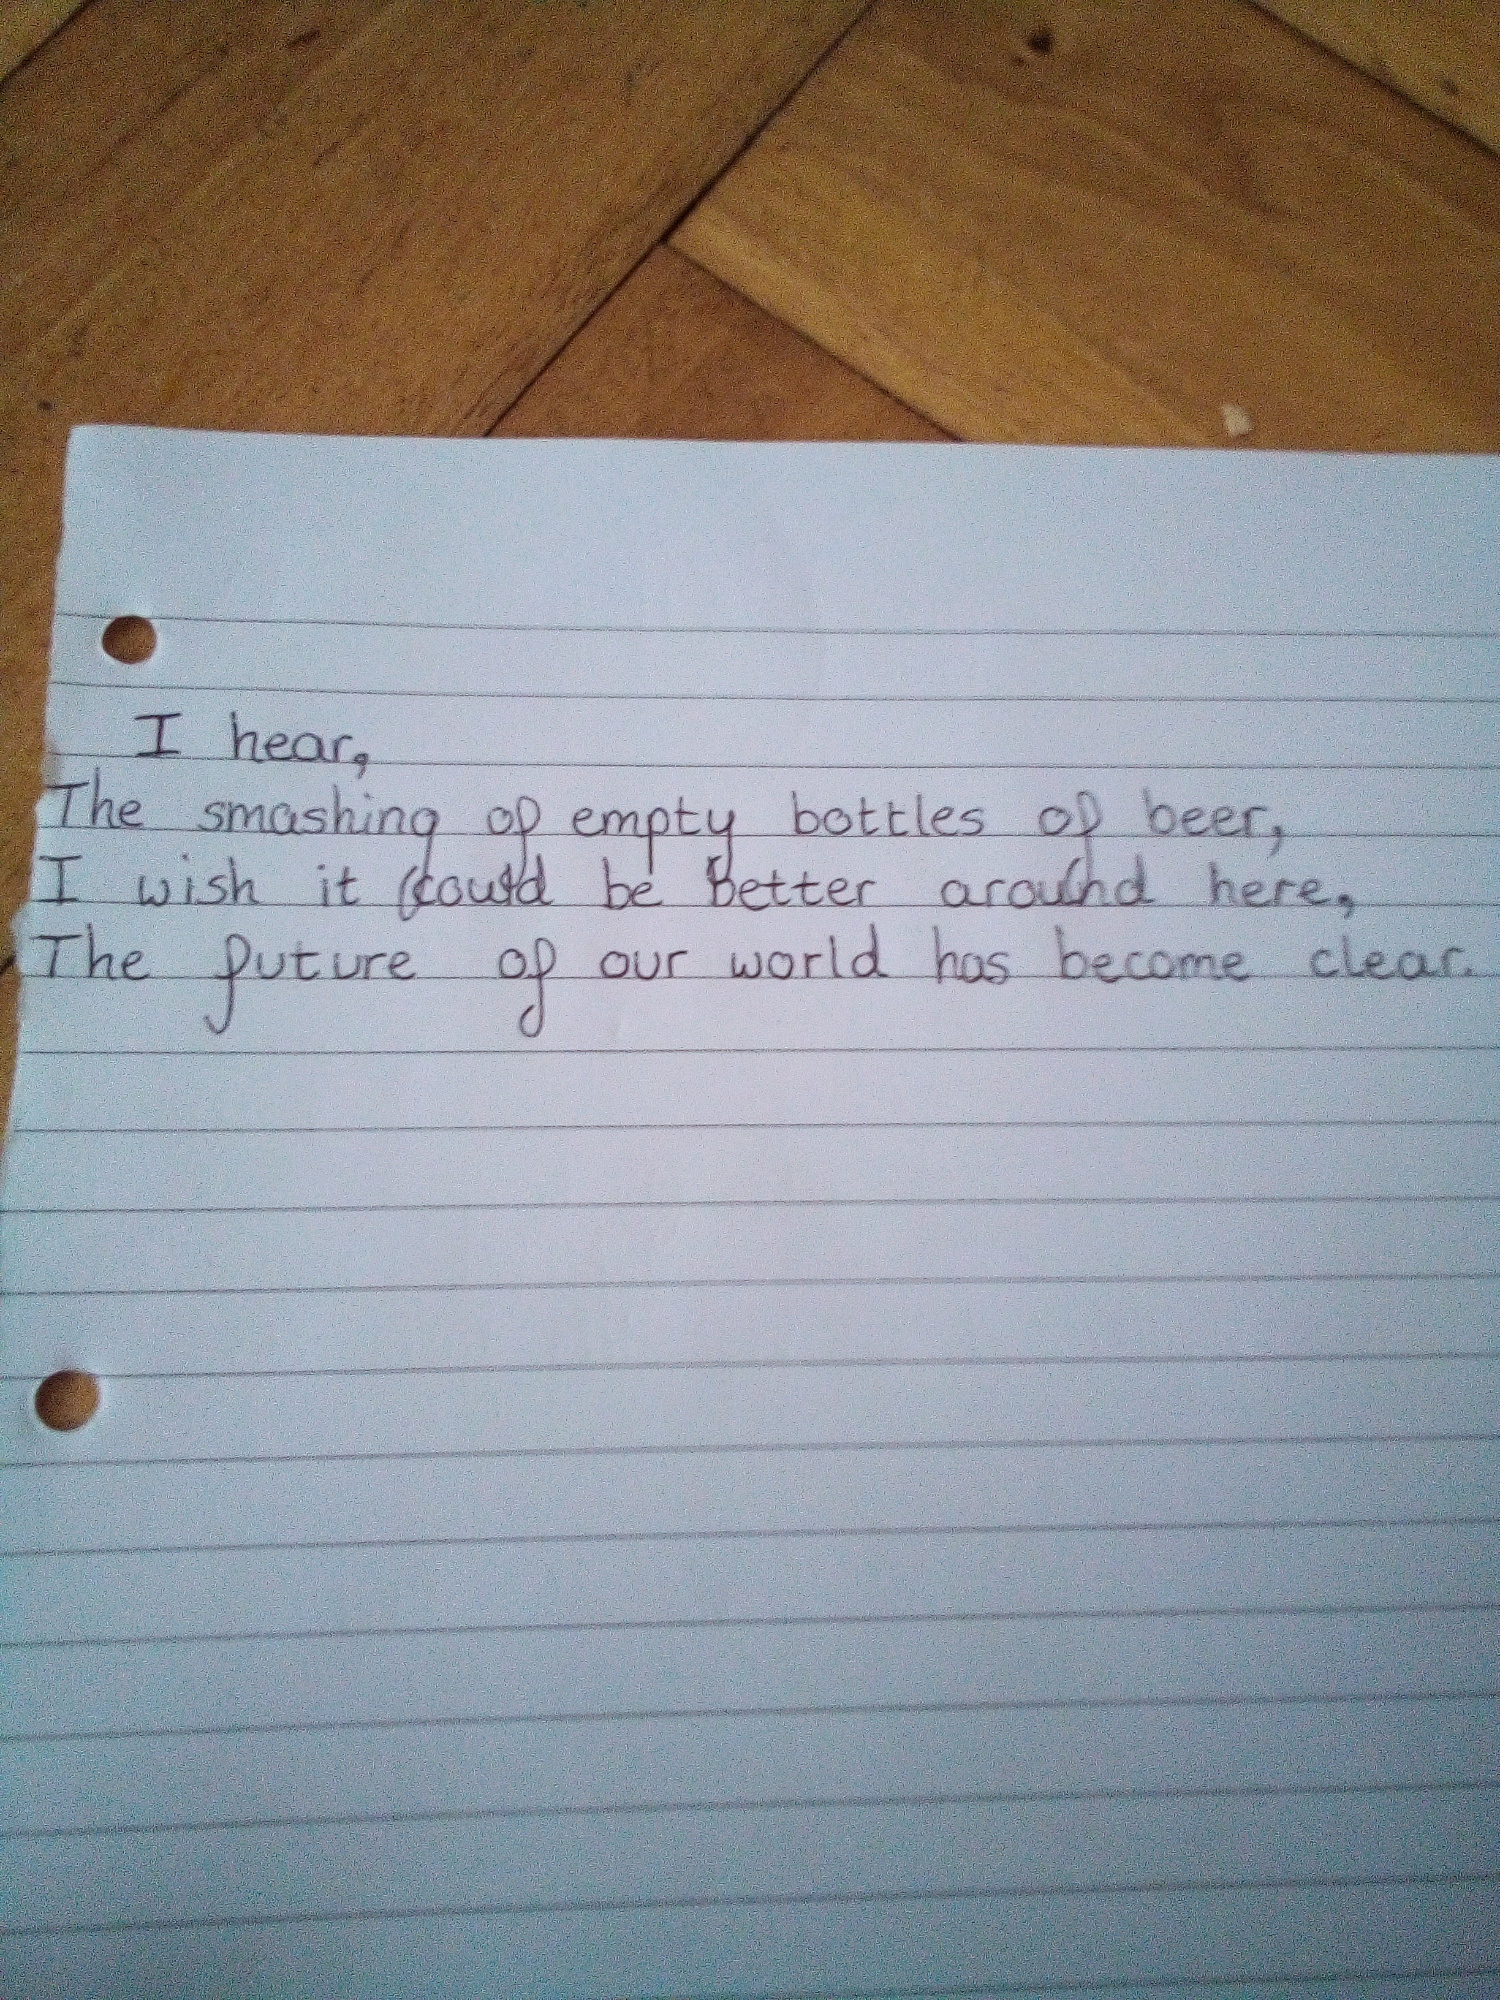 I hear,
The smashing of empty bottles of beer,
I wish it could be better around here,
The future of our world has become clear.